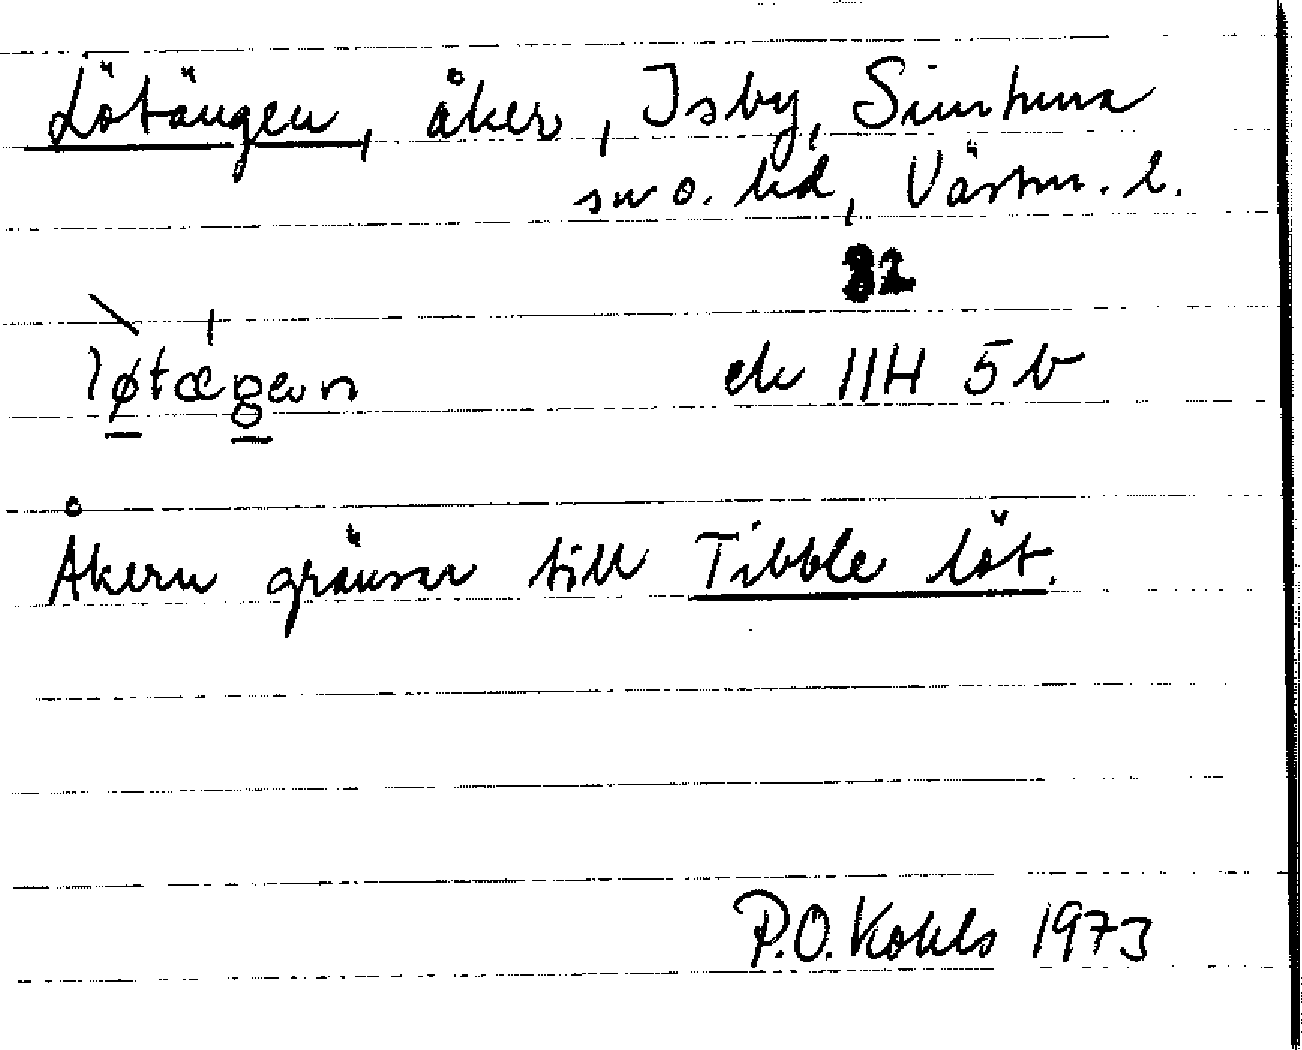 Lötängen, åker, Isby, Simtuna
sn o. hd, Västm. l.
32
løtægen
ek 11H 5b
Åkern gränsar till Tibble löt.
P.O. Kohls 1973